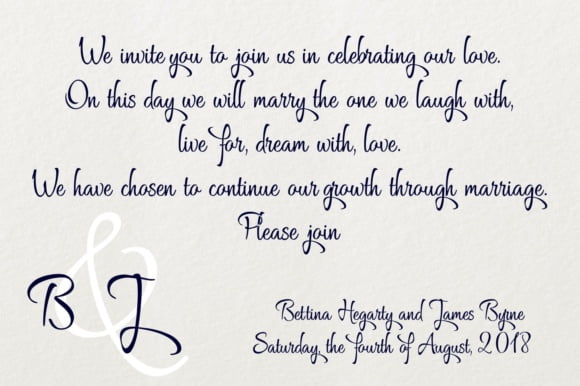 We invite you to join us in celebrating our love.
On this day we will marry the one we laugh with,
live for, dream with, love.
We have chosen to continue our growth through marriage.
Please join
B & J
Bettina Hegarty and James Byrne
Saturday, the fourth of August, 2018